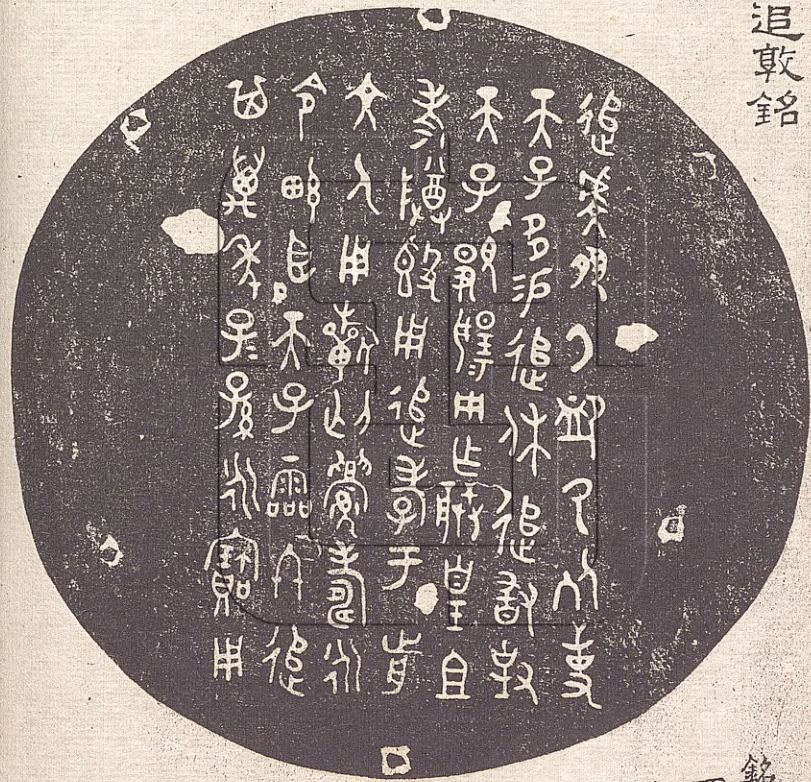 追敦銘
追虔夙夕卹厥死事
天子多易追休追敢對
天子覭揚用乍朕皇且
考尊簋用追孝于前
文人用祈匄眉壽永
令畯臣天子霝冬追
其萬年子子孫孫永寶用
銘